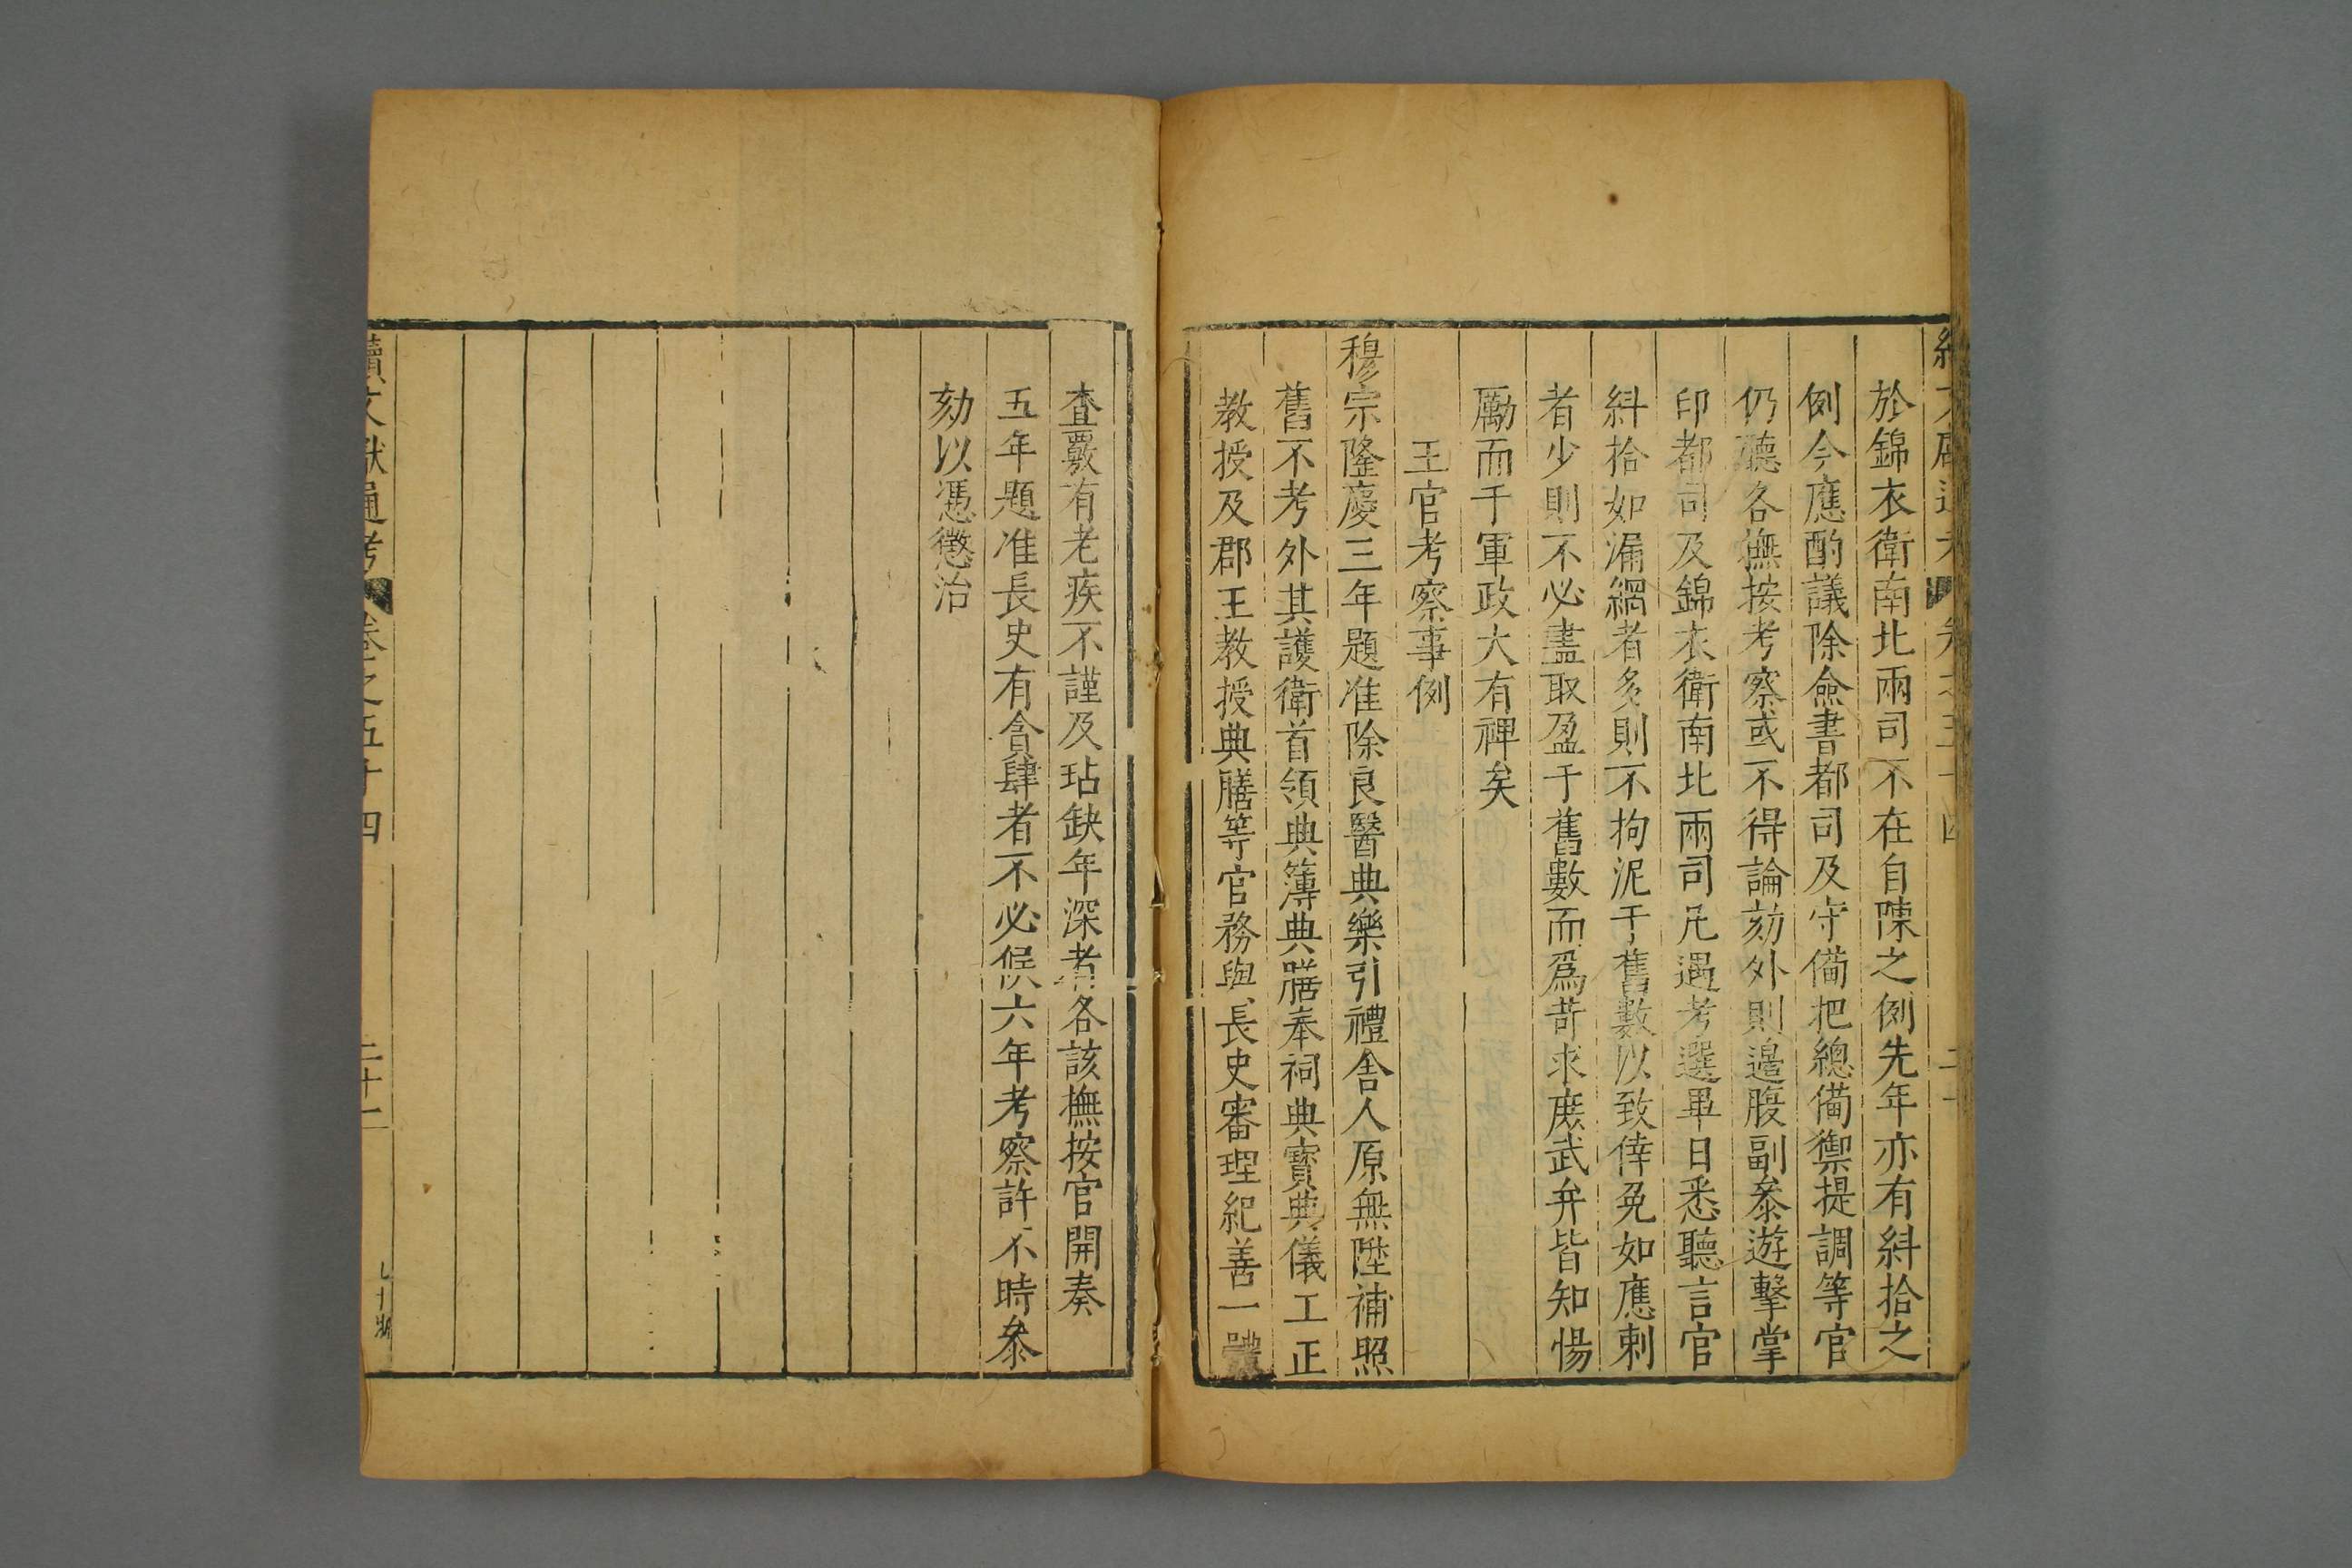 於錦衣衛南北兩司不在自陳之例先年亦有糾拾之
例今應酌議除僉書都司及守備把總備禦提調等官
仍聽各撫按考察或不得論劾外則邉腹副叅遊擊掌
印都司及錦衣衛南北兩司凡遇考選畢日悉聽言官
糾拾如漏網者多則不拘泥于舊數以致倖免如應剌
者少則不必盡取盈于舊數而爲苛求庻武弁皆知惕
勵而于軍政大有裨矣
王官考察事例
穆宗隆慶三年題准除良醫典樂引禮舎人原無陞補照
舊不考外其護衛首領典簿典膳奉祠典寳典儀工正
教授及郡王教授典膳等官務與長史審理紀善一體
查覈有老疾不謹及玷缺年深者各該撫按官開奏
五年題准長史有貪肆者不必候六年考察許不時叅
劾以憑懲治
續文獻通考 卷之五十四 二十一